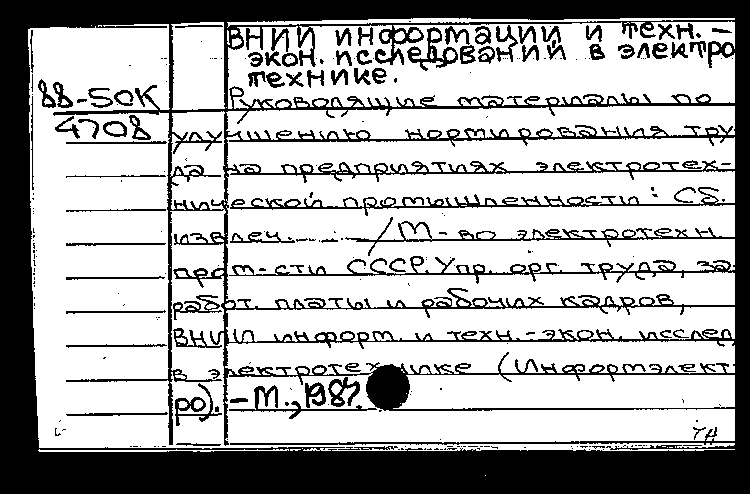 ВНИИ информации и техн.-
экон. исследований в электро
технике.
88-50К
4708
Руководящие материалы по
улучшению нормирования тру
да на предприятиях электротех-
нической промышленности: Сб.
извлеч. / М-во электротехн.
пром-сти СССР. Упр. орг. труда, за-
работ. платы и рабочих кадров,
ВНИИ информ. и техн.-экон. исслед.
в электротехнике (Информэлект
ро). - М., 1987.